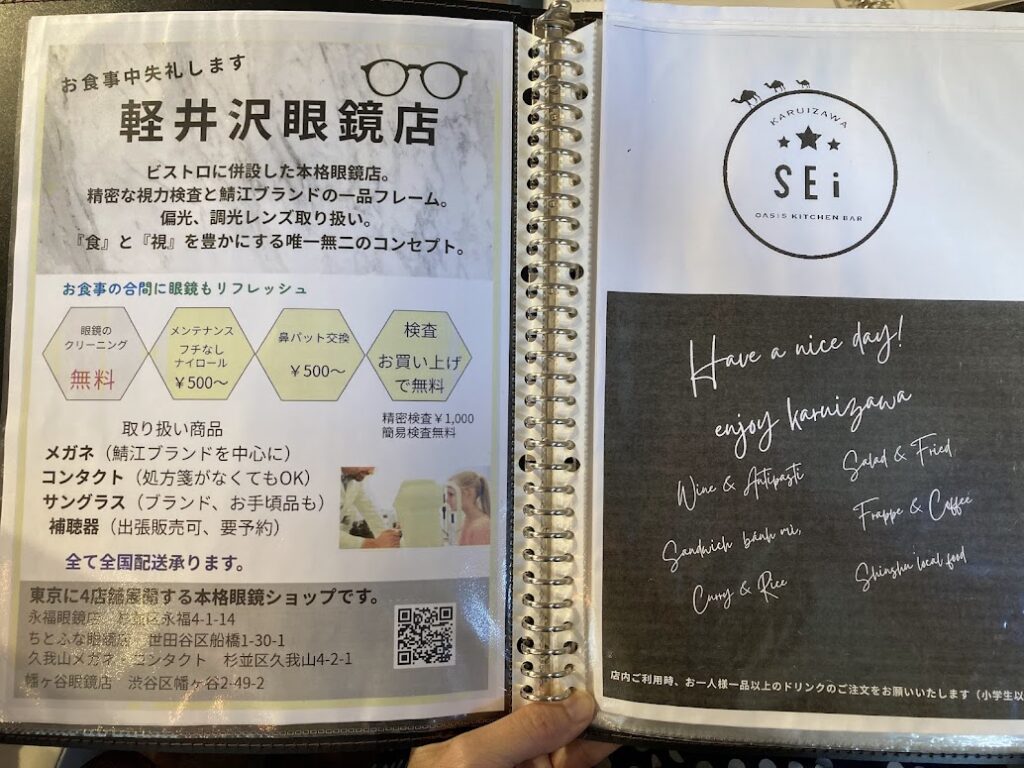 お食事中失礼します
軽井沢眼鏡店
ビストロに併設した本格眼鏡店。
精密な視力検査と鯖江ブランドの一品フレーム。
偏光、調光レンズ取り扱い。
『食』と『視』を豊かにする唯一無二のコンセプト。
お食事の合間に眼鏡もリフレッシュ
眼鏡の
クリーニング
無料
メンテナンス
フチなし
ナイロール
￥500～
鼻パット交換
￥500～
検査
お買い上げ
で無料
精密検査￥1,000
簡易検査無料
取り扱い商品
メガネ（鯖江ブランドを中心に）
コンタクト（処方箋がなくてもOK）
サングラス（ブランド、お手頃品も）
補聴器（出張販売可、要予約）
全て全国配送承ります。
東京に4店舗展開する本格眼鏡ショップです。
永福眼鏡店 杉並区永福4-1-14
ちとふな眼鏡店 世田谷区船橋1-30-1
久我山メガネ・コンタクト 杉並区久我山4-2-1
幡ヶ谷眼鏡店 渋谷区幡ヶ谷2-49-2
KARUIZAWA
SEi
OASIS KITCHEN BAR
Have a nice day!
enjoy karuizawa
Wine & Antipasti
Salad & Fried
Sandwich bánh mì,
Frappe & Coffee
Curry & Rice
Shinshu local food
店内ご利用時、お一人様一品以上のドリンクのご注文をお願いいたします（小学生以